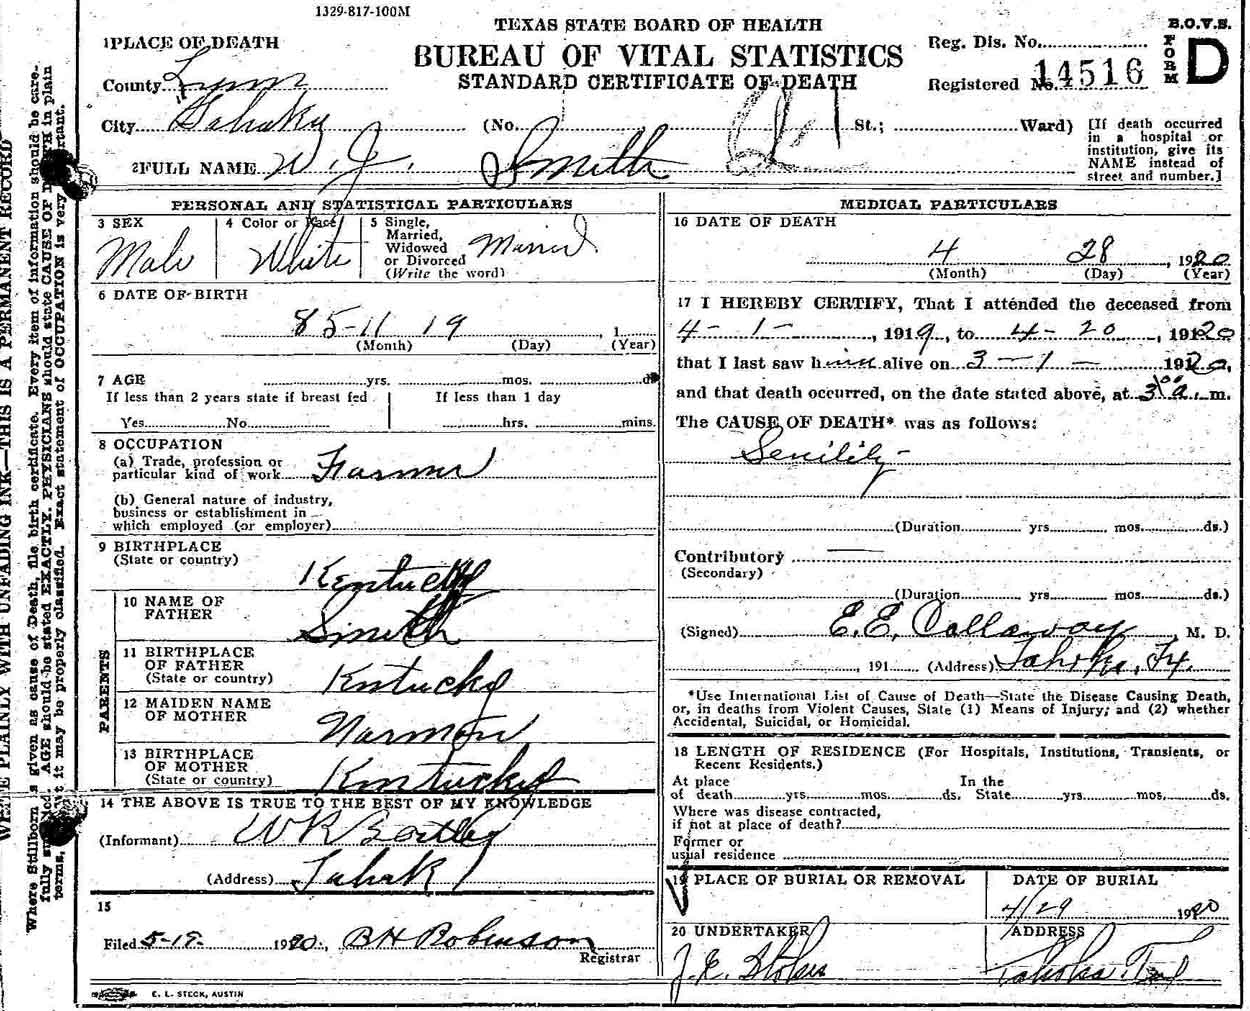 1329-817-100M
TEXAS STATE BOARD OF HEALTH
BUREAU OF VITAL STATISTICS
STANDARD CERTIFICATE OF DEATH
B.O.V.S.
FORM D
Reg. Dis. No.
Registered No. 14516
1 PLACE OF DEATH
County Lynn
City Tahoka (No. St.; Ward)
[If death occurred
in a hospital or
institution, give its
NAME instead of
street and number.]
2 FULL NAME W. J. Smith
PERSONAL AND STATISTICAL PARTICULARS
3 SEX
Male
4 Color or Race
White
5 Single,
Married,
Widowed
or Divorced
(Write the word)
Married
6 DATE OF BIRTH
85-11 19, 1
(Month) (Day) (Year)
7 AGE yrs. mos. ds
If less than 2 years state if breast fed
Yes No
If less than 1 day
hrs. mins.
8 OCCUPATION
(a) Trade, profession or
particular kind of work Farmer
(b) General nature of industry,
business or establishment in
which employed (or employer)
9 BIRTHPLACE
(State or country)
Kentucky
PARENTS
10 NAME OF
FATHER
Smith
11 BIRTHPLACE
OF FATHER
(State or country)
Kntucky
12 MAIDEN NAME
OF MOTHER
13 BIRTHPLACE
OF MOTHER
(State or country)
Kntucky
14 THE ABOVE IS TRUE TO THE BEST OF MY KNOWLEDGE
(Informant) W R
(Address)
15
Filed 5-19- 1920, B H Robinson
Registrar
E. L. STECK, AUSTIN
MEDICAL PARTICULARS
16 DATE OF DEATH
4 28, 1920
(Month) (Day) (Year)
17 I HEREBY CERTIFY, That I attended the deceased from
4-1-, 1919, to 4-20, 19120
that I last saw him alive on 3-1- 19120,
and that death occurred, on the date stated above, at 3 00 a. m.
The CAUSE OF DEATH* was as follows:
Senility
(Duration yrs. mos. ds.)
Contributory
(Secondary)
(Duration yrs. mos. ds.)
(Signed) E. E. Callaway M. D.
, 191 (Address) Tahoka, Tx.
*Use International List of Cause of Death—State the Disease Causing Death,
or, in deaths from Violent Causes, State (1) Means of Injury; and (2) whether
Accidental, Suicidal, or Homicidal.
18 LENGTH OF RESIDENCE (For Hospitals, Institutions, Transients, or
Recent Residents.)
At place
of death yrs. mos. ds.
In the
State yrs. mos. ds.
Where was disease contracted,
if not at place of death?
Former or
usual residence
19 PLACE OF BURIAL OR REMOVAL
DATE OF BURIAL
4/29 1920
20 UNDERTAKER
J. E. Stokes
ADDRESS
Tahoka
WRITE PLAINLY WITH UNFADING INK—THIS IS A PERMANENT RECORD
Where Stillborn is given as cause of Death, file birth certificate. Every item of information should be care-
fully supplied. AGE should be stated EXACTLY. PHYSICIANS should state CAUSE OF DEATH in plain
terms, it may be properly classified. Exact statement of OCCUPATION is very important.